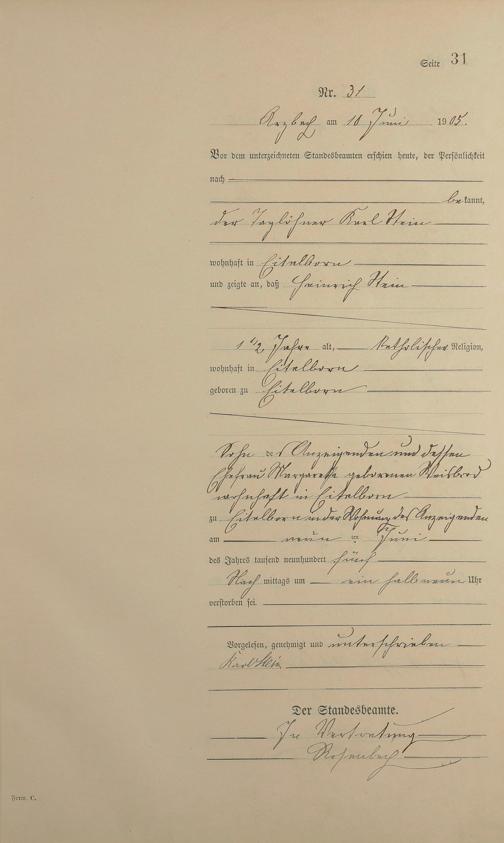 Seite 31
Nr. 31
Arzbach am 10 Juni 1905.
Vor dem unterzeichneten Standesbeamten erschien heute, der Persönlichkeit
nach
bekannt,
der Taglöhner Karl Stein
wohnhaft in Eitelborn
und zeigte an, daß Heinrich Stein
1 1/2 Jahre alt, katholischer Religion,
wohnhaft in Eitelborn
geboren zu Eitelborn
Sohn des Anzeigenden und dessen
Ehefrau Margaretha geborenen Weisbrod
wohnhaft in Eitelborn
zu Eitelborn in der Wohnung des Anzeigenden
am neun ten Juni
des Jahres tausend neunhundert fünf
Nach mittags um ein halb neun Uhr
verstorben sei.
Vorgelesen, genehmigt und unterschrieben
Karl Stein
Der Standesbeamte.
In Vertretung
Rosenbach
Form. C.